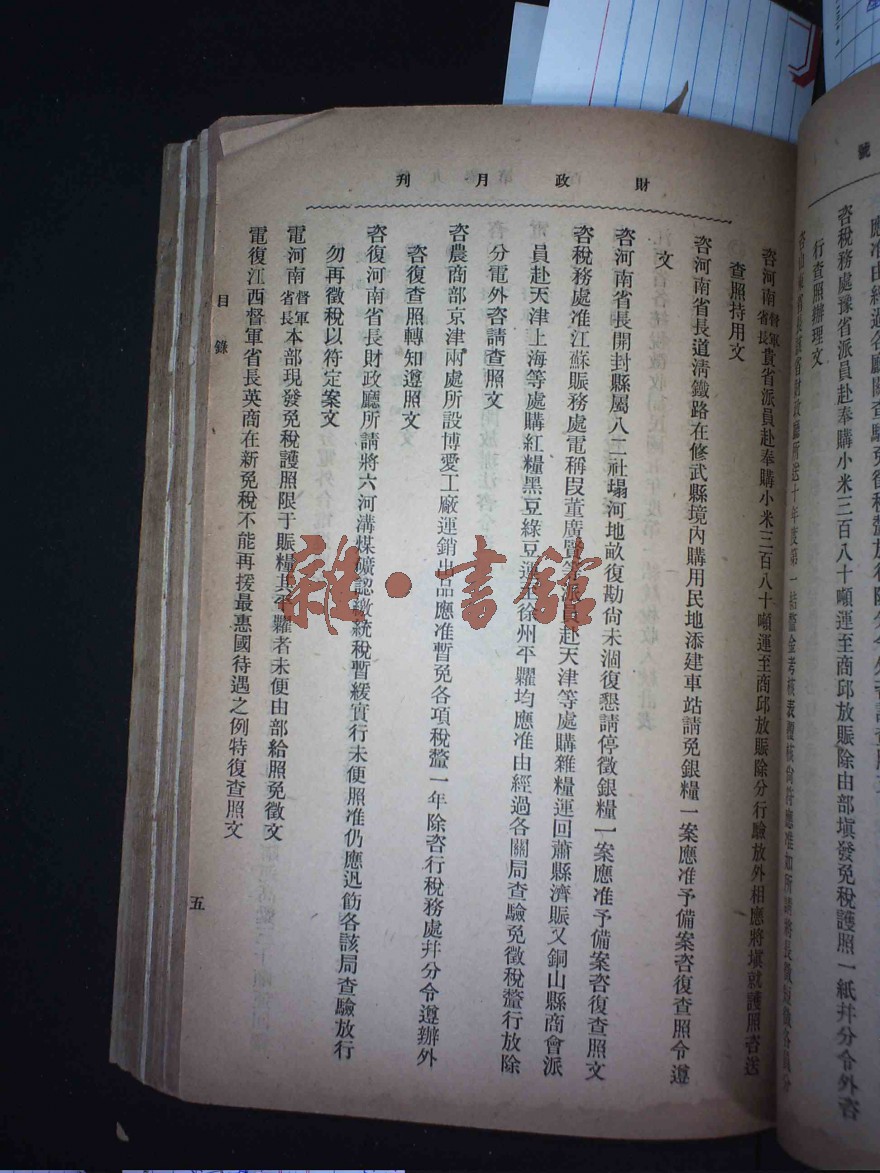 號
咨稅務處豫省派員赴奉購小米三百八十噸運至商邱放賑除由部塡發免稅護照一紙幷分令外咨
行查照辦理文
財政月刊
咨河南督軍省長貴省派員赴奉購小米三百八十噸運至商邱放賑除分行驗放外相應將塡就護照咨送
查照持用文
咨河南省長道淸鐵路在修武縣境內購用民地添建車站請免銀糧一案應准予備案咨復查照令遵
文
咨河南省長開封縣屬八二社塌河地畝復勘尙未涸復懇請停徵銀糧一案應准予備案咨復查照文
咨稅務處准江蘇賑務處電稱段董廣賢等派員赴天津等處購雜糧運回蕭縣濟賑又銅山縣商會派
員赴天津上海等處購紅糧黑豆綠豆運至徐州平糶均應准由經過各關局查驗免徵稅釐行放除
分電外咨請查照文
咨農商部京津兩處所設博愛工廠運銷出品應准暫免各項稅釐一年除咨行稅務處幷分令遵辦外
咨復查照轉知遵照文
咨復河南省長財政廳所請將六河溝煤礦認繳統稅暫緩實行未便照准仍應迅飭各該局查驗放行
勿再徵稅以符定案文
電河南督軍省長本部現發免稅護照限于賑糧其平糶者未便由部給照免徵文
電復江西督軍省長英商在新免稅不能再援最惠國待遇之例特復查照文
目錄
五
雜·書館